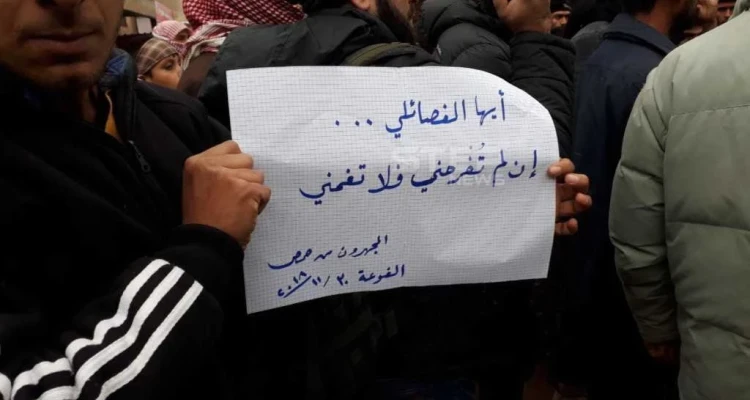 أيها الفصائلي ...
إن لم تُفرحني فلا تغمني
المهجرون من حمص
الفوعة ٣٠/١١/٢٠١٨
STEP
NEWS